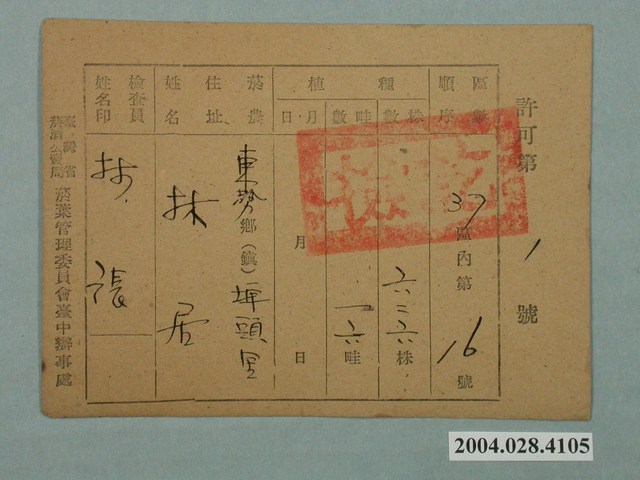 許可第 1 號
區數順序
37 區內第 16 號
種植
株數
六三六株
畦數
一六畦
月·日
月 日
菸農
住址
姓名
東勢鄉(鎮)埤頭里
林 居
檢查員
姓名印
林 張
臺灣省
菸酒公賣局
菸葉管理委員會臺中辦事處
2004.028.4105